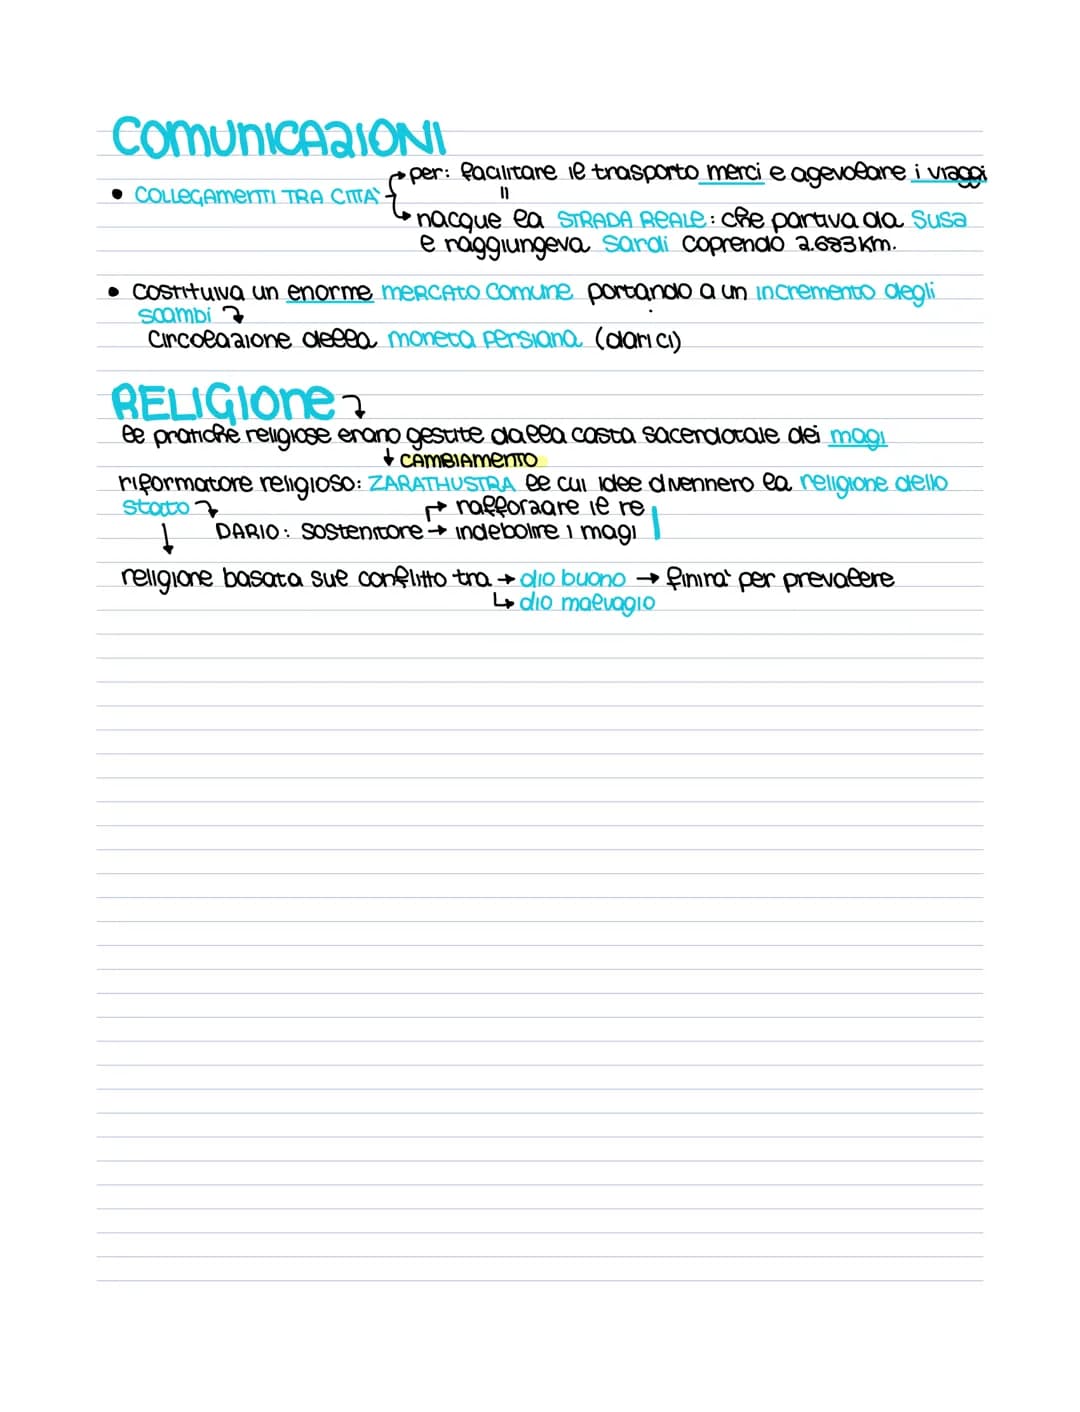 COMUNICAZIONI
per: facilitare il trasporto merci e agevolare i viaggi
• COLLEGAMENTI TRA CITTA'
nacque la STRADA REALE: che partiva da Susa
e raggiungeva Sardi coprendo 2.683 km.
• costituiva un enorme mercato comune portando a un incremento degli
scambi
circolazione della moneta persiana (darici)
RELIGIONE
le pratiche religiose erano gestite dalla casta sacerdotale dei magi
CAMBIAMENTO
riformatore religioso: ZARATHUSTRA le cui idee divennero la religione dello
stato
rafforzare il re
DARIO: sostenitore → indebolire i magi
religione basata sul conflitto tra → dio buono → finira' per prevalere
dio malvagio